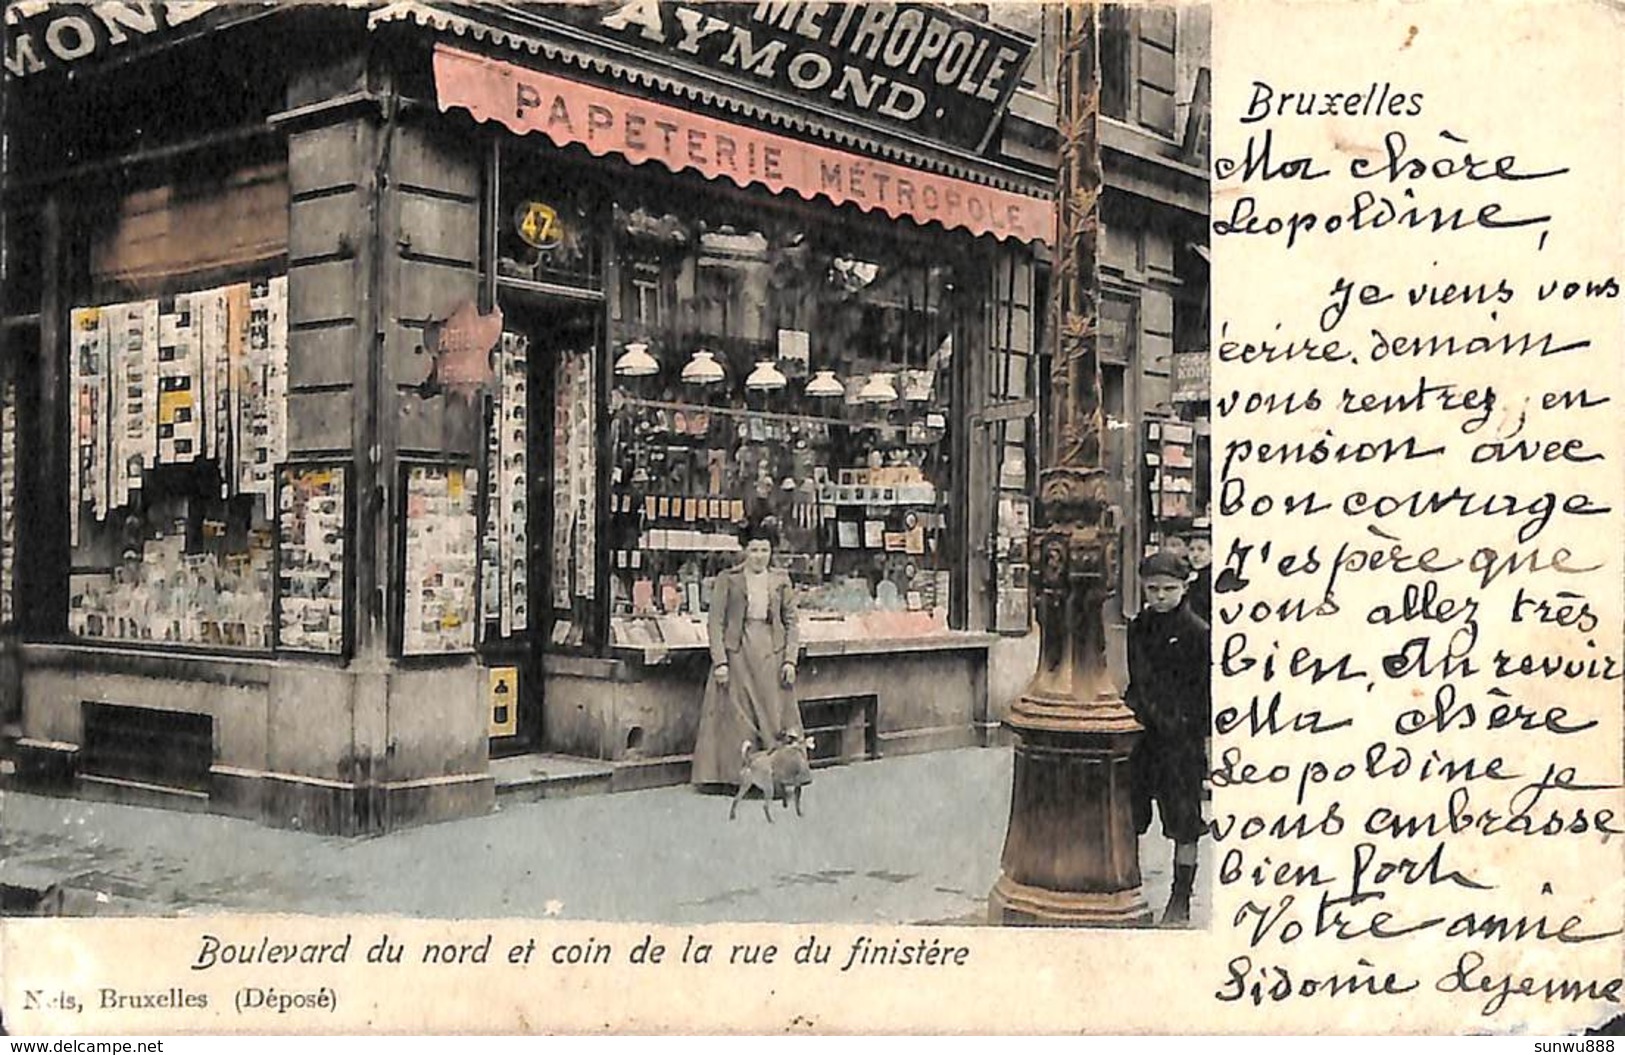 MÉTROPOLE
AYMOND.
MOND
PAPETERIE MÉTROPOLE
47
Bruxelles
Ma chère
Leopoldine,
je viens vous
écrire. demain
vous rentrez, en
pension avec
bon courrage
J'espère que
vous allez très
bien. Au revoir
Ma chère
Leopoldine je
vous embrasse
bien fort
Votre amie
Sidonie Lejeune
Boulevard du nord et coin de la rue du finistére
Nels, Bruxelles (Déposé)
www.delcampe.net
sunwu888